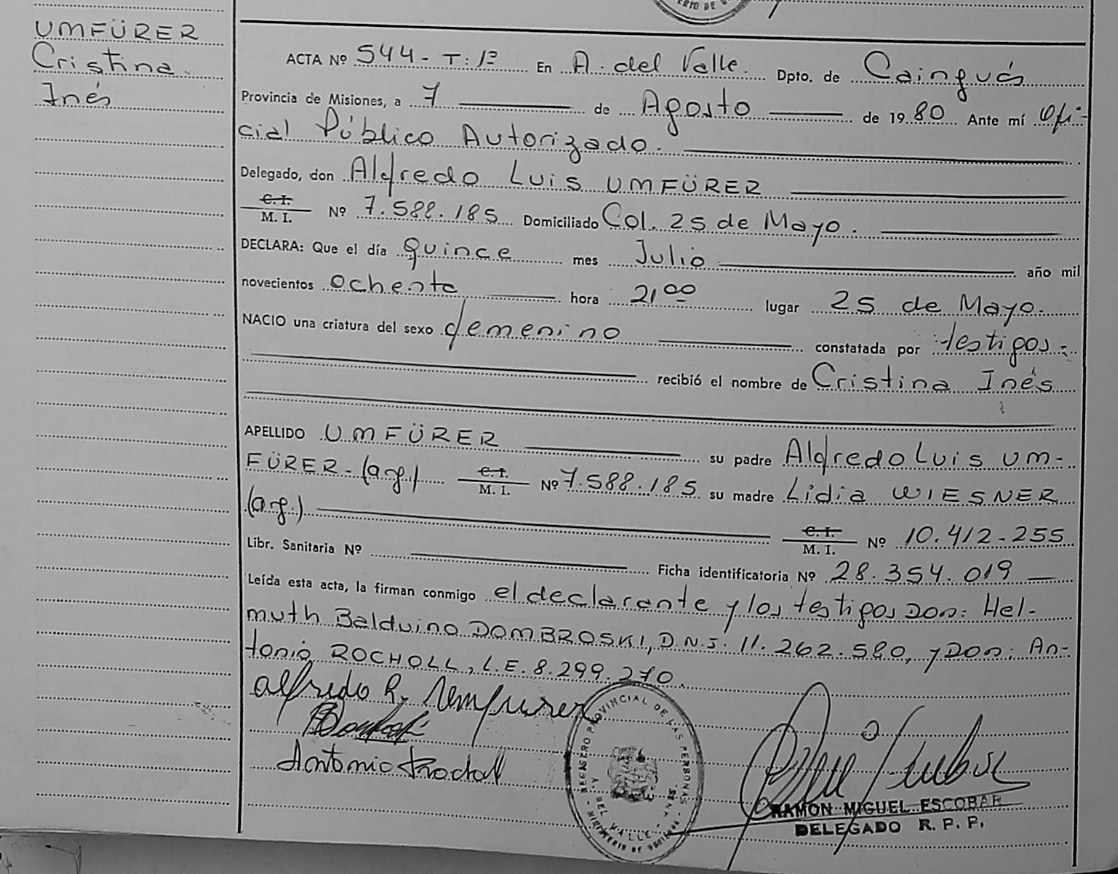 UMFÜRER
Cristina
Inés
ACTA Nº 544 - T: 1º En A. del Valle. Dpto. de Cainguás
Provincia de Misiones, a 7 de Agosto de 1980 Ante mí Ofi-
cial Público Autorizado.
Delegado, don Alfredo Luis UMFÜRER
C.I. / M. I. Nº 7.588.185 Domiciliado Col. 25 de Mayo.
DECLARA: Que el día quince mes Julio año mil
novecientos ochenta hora 21,00 lugar 25 de Mayo.
NACIO una criatura del sexo femenino constatada por testigos.-
recibió el nombre de Cristina Inés
APELLIDO UMFÜRER su padre Alfredo Luis UM-
FÜRER - (arg.) C.I. / M. I. Nº 7.588.185 su madre Lidia WIESNER
(arg.) C.I. / M. I. Nº 10.412.255
Libr. Sanitaria Nº Ficha identificatoria Nº 28.354.019
Leída esta acta, la firman conmigo el declarante y los testigos Don: Hel-
muth Balduino DOMBROSKI, D.N.I. 11.262.580, y Don: An-
tonio ROCHOLL, L.E. 8.299.270.
Alfredo
Antonio
REGISTRO PROVINCIAL DE LAS PERSONAS
DEL VALLE
RAMON MIGUEL ESCOBAR
DELEGADO R. P. P.